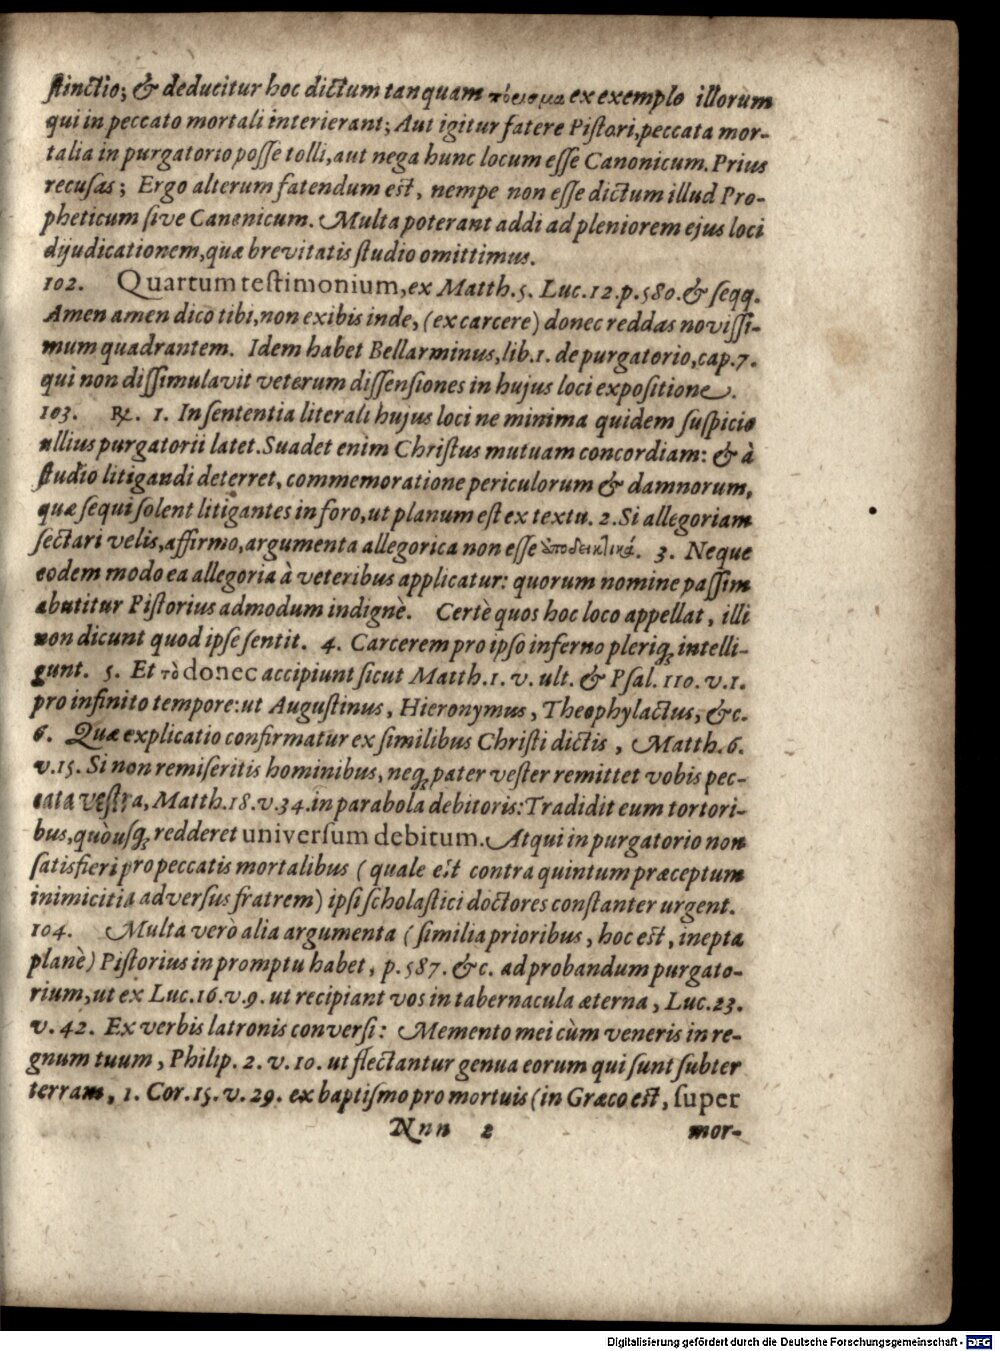 stinctio; & deducitur hoc dictum tanquam πόρισμα ex exemplo illorum
qui in peccato mortali interierant; Aut igitur fatere Pistori, peccata mor-
talia in purgatorio posse tolli, aut nega hunc locum esse Canonicum. Prius
recusas; Ergo alterum fatendum est, nempe non esse dictum illud Pro-
pheticum sive Canonicum. Multa poterant addi ad pleniorem ejus loci
dijudicationem, quæ brevitatis studio omittimus.
102. Quartum testimonium, ex Matth. 5. Luc. 12. p. 580. & seqq.
Amen amen dico tibi, non exibis inde, (ex carcere) donec reddas novissi-
mum quadrantem. Idem habet Bellarminus, lib. 1. de purgatorio, cap. 7.
qui non dissimulavit veterum dissensiones in hujus loci expositione.
103. ℞. 1. In sententia literali hujus loci ne minima quidem suspicio
ullius purgatorii latet. Suadet enim Christus mutuam concordiam: & à
studio litigandi deterret, commemoratione periculorum & damnorum,
quæ sequi solent litigantes in foro, ut planum est ex textu. 2. Si allegoriam
sectari velis, affirmo, argumenta allegorica non esse ὑποδεικτικά. 3. Neque
eodem modo ea allegoria à veteribus applicatur: quorum nomine passim
abutitur Pistorius admodum indignè. Certè quos hoc loco appellat, illi
non dicunt quod ipse sentit. 4. Carcerem pro ipso inferno pleriq; intelli-
gunt. 5. Et τὸ donec accipiunt sicut Matth. 1. v. ult. & Psal. 110. v. 1.
pro infinito tempore: ut Augustinus, Hieronymus, Theophylactus, &c.
6. Quæ explicatio confirmatur ex similibus Christi dictis, Matth. 6.
v. 15. Si non remiseritis hominibus, neq; pater vester remittet vobis pec-
cata vestra, Matth. 18. v. 34. in parabola debitoris: Tradidit eum tortori-
bus, quòusq; redderet universum debitum. Atqui in purgatorio non
satisfieri pro peccatis mortalibus (quale est contra quintum præceptum
inimicitia adversus fratrem) ipsi scholastici doctores constanter urgent.
104. Multa verò alia argumenta (similia prioribus, hoc est, inepta
planè) Pistorius in promptu habet, p. 587. &c. ad probandum purgato-
rium, ut ex Luc. 16. v. 9. ut recipiant vos in tabernacula æterna, Luc. 23.
v. 42. Ex verbis latronis conversi: Memento mei cùm veneris in re-
gnum tuum, Philip. 2. v. 10. ut flectantur genua eorum qui sunt subter
terram, 1. Cor. 15. v. 29. ex baptismo pro mortuis (in Græco est, super
Nnn 2 mor-
Digitalisierung gefördert durch die Deutsche Forschungsgemeinschaft - DFG